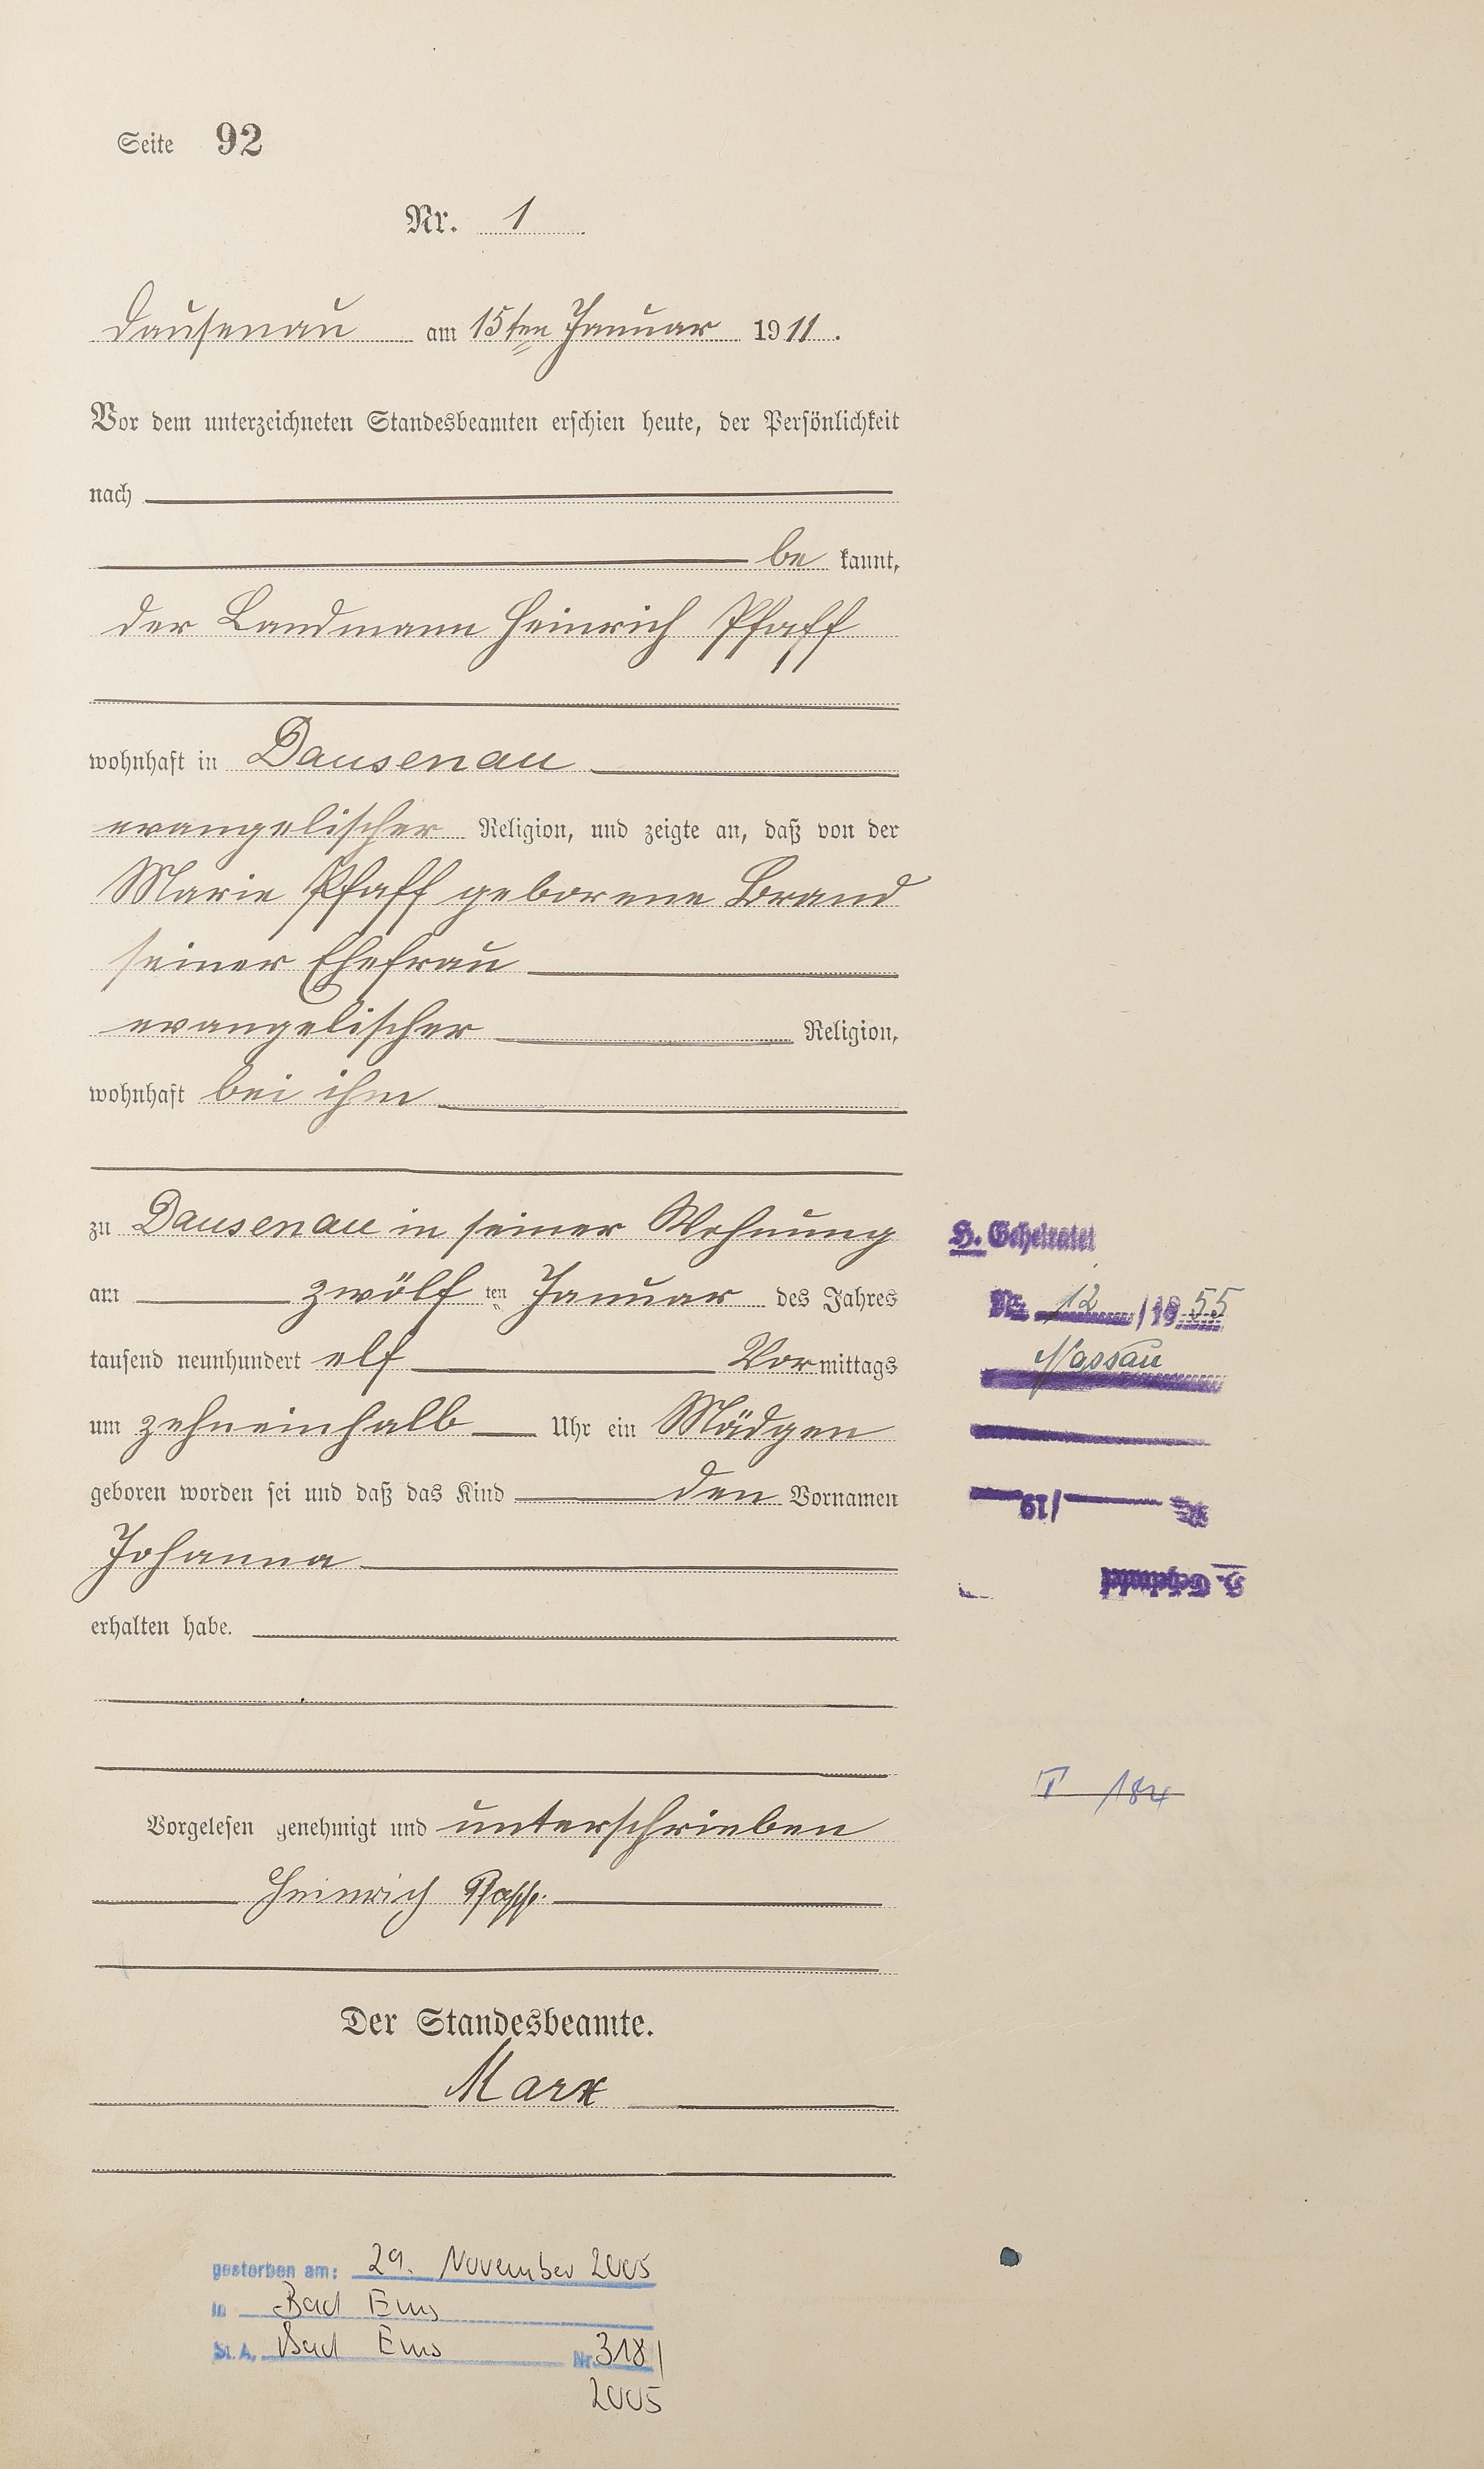 Seite 92
Nr. 1
Dausenau am 15ten Januar 1911.
Vor dem unterzeichneten Standesbeamten erschien heute, der Persönlichkeit
nach
be kannt,
der Landmann Heinrich Pfaff
wohnhaft in Dausenau
evangelischer Religion, und zeigte an, daß von der
Marie Pfaff geborene Brand
seiner Ehefrau
evangelischer Religion,
wohnhaft bei ihm
zu Dausenau in seiner Wohnung
am zwölf ten Januar des Jahres
tausend neunhundert elf Vormittags
um zehneinhalb Uhr ein Mädgen
geboren worden sei und daß das Kind den Vornamen
Johanna
erhalten habe.
Vorgelesen genehmigt und unterschrieben
Heinrich Pfaff.
Der Standesbeamte.
Marx
gestorben am: 29. November 2005
in Bad Ems
St. A. Bad Ems Nr. 318/
2005
H. Geheiratet
Nr. 12/1955
Nassau
Nr. /19
H. Geheiratet
T 184